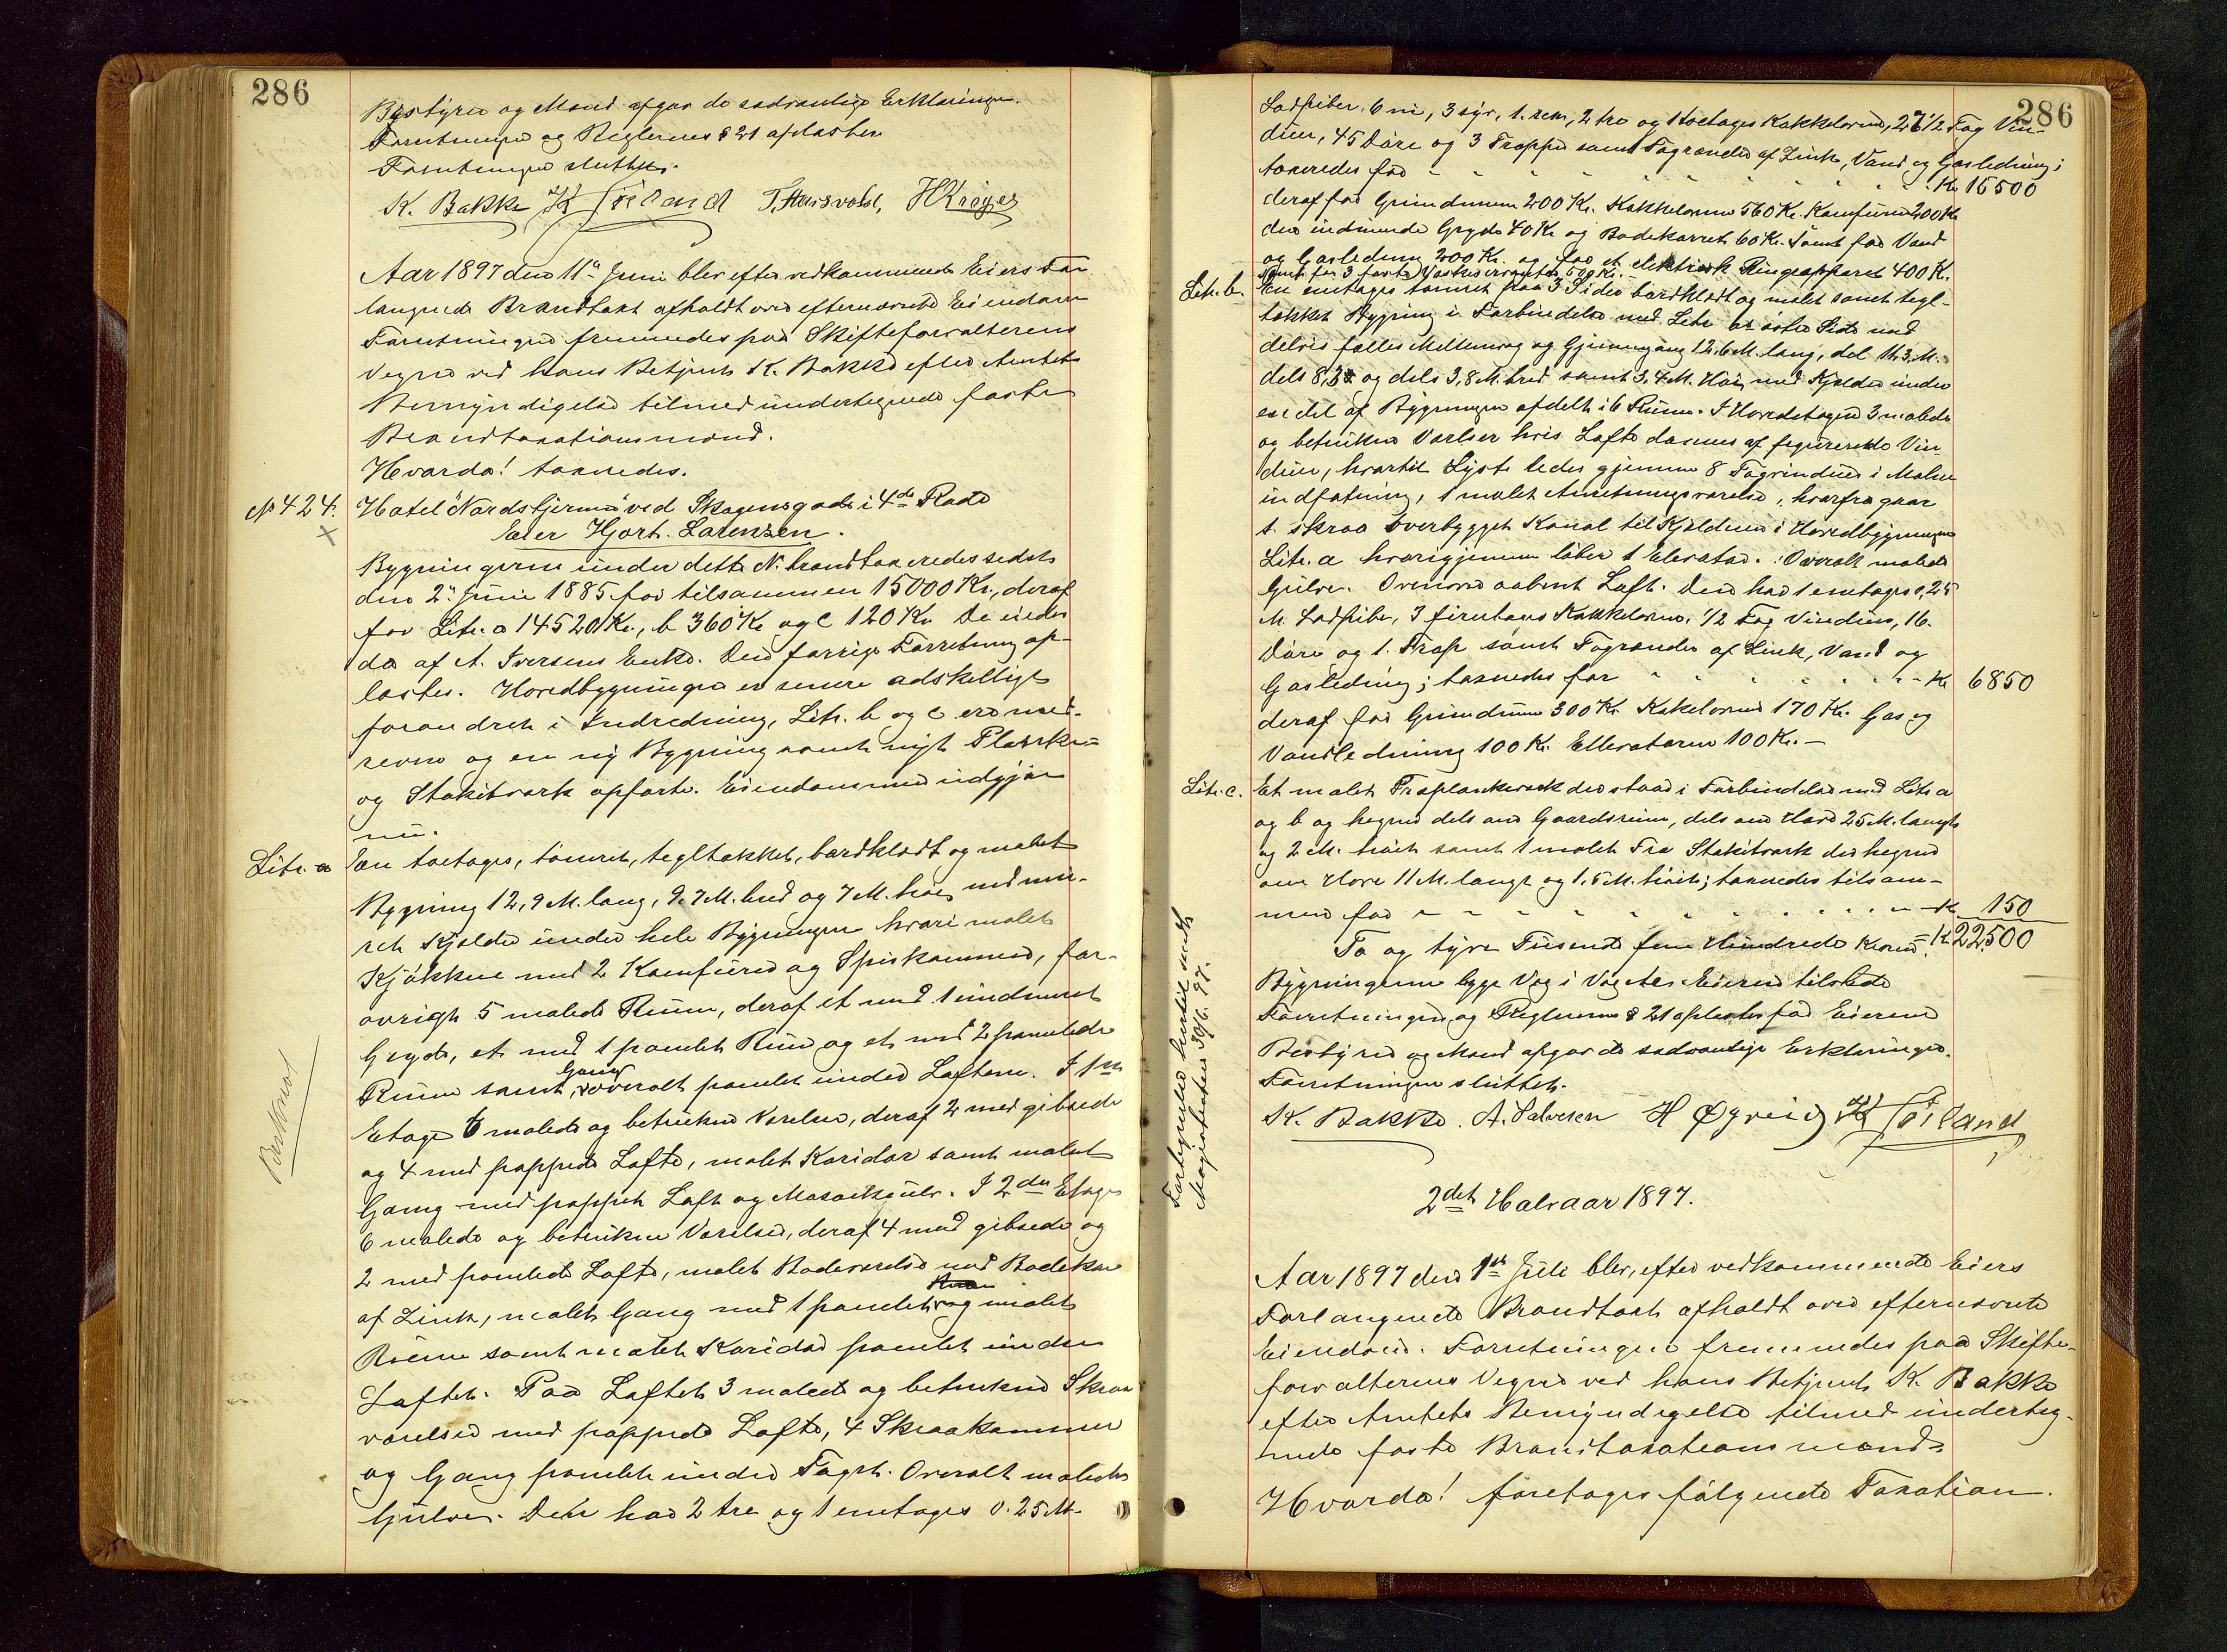 286
Bestyren og Mand afgav de sædvanlige Erklæringer.
Forretningen og Reglernes § 21 oplæstes
Forretningen sluttet.
K. Bakke K Tøiland T. Hausvold, H Krøger
Aar 1897 den 11te Juni blev efter vedkommende Eiers For-
langende Brandtaxt afholdt over efternævnte Eiendom
Forretningen fremmedes paa Skifteforvalterens
Vegne ved hans Betjent K. Bakke efter Amtets
Bemyndigelse tilmed undertegnede faste
Brandtaxationsmænd.
Hvorda! taxeredes.
No 424. Hotel "Nordstjernen" ved Skagensgade i 4de Rode
Eier Hjort. Lorenzen.
Bygningerne under dette No brandtaxeredes sidst
den 2den Juni 1885 for tilsammen 15000 Kr., deraf
for Litr. a 14520 Kr., b 360 Kr og c 120 Kr. De eiedes
da af A. Iversens Enke. Den forrige Forretning op-
læstes. Hovedbygningen er senere adskilligt
forandret i Indredning, Litr. b og c ere ned-
revne og en ny Bygning samt nyt Plankev-
og Stakitværk opførte. Eiendommen udgjør
nu.
Litr. a En toetages, tømret, tegltækket, bordklædt og malet
Bygning 12,9 M. lang, 9,7 M. bred og 7 M. høi, med mu-
ret Kjelder under hele Bygningen hvori malet
Kjøkken med 2 Komfurer og Spiskammer, for-
øvrigt 5 malede Rum, deraf et med 1 indmuret
Gryde, et med 1 panelet Rum og et med 2 panelede
Rum samt Gang overalt panelet under Lofterne. I 1ste
Etage 6 malede og betrukne Værelser, deraf 2 med gibsede
og 4 med pappede Lofte, malet Koridor samt malet
Gang med pappet Loft og Mosaikgulv. I 2den Etage
6 malede og betrukne Værelser, deraf 4 med gibsede og
2 med panelede Lofte, malet Badeværelse med Badekar
af Zink, malet Gang med 1 panelet og malet
Rum samt malet Koridor panelet under
Loftet. Paa Loftet 3 malede og betrukne Skraa-
værelser med pappede Lofte, 4 Skraakammer
og Gang panelet under Taget. Overalt malede
Gulve. Den har 2 tre og 1 enetages 0.25 M.
Beskrevet
286
Ladpiber, 6 ni, 3 syv, 1 sex, 2 tre og 1 toetages Kakkelovne, 27 1/2 Fag Vin-
duer, 45 Døre og 3 Trapper samt Tagrender af Zink, Vand og Gasledning;
taxeredes for - - - - Kr. 15500
deraf for Grundmure 200 Kr. Kakkelovne 560 Kr. Komfurer 200 Kr
den indmurede Gryde 40 Kr og Badekarret 60 Kr. samt for Vand
og Gasledning 200 Kr. og for et elektrisk Ringeapparat 400 Kr.
samt for 3 faste Vaskeservanter 500 Kr.
Litr. b. En enetages tømret paa 3 Sider bordklædt og malet samt tegl-
tækket Bygning i Forbindelse med Litr. a's østre Side med
delvis fælles Mellemvæg og Gjennemgang 12,6 M. lang, del 11,3 M.
dels 8,3 og dels 3,8 M. bred samt 3,4 M. høi, med Kjelder under
en del af Bygningen afdelt i 6 Rum. I Hovedetagen 3 malede
og betrukne Værelser hvis Lofte dannes af figurerede Vin-
duer, hvortil Lyste ledes gjennem 8 Tagvinduer i Metal
indfatning, 1 malet Anretningsværelse, hvorfra gaar
1 skraa overbygget Kanal til Kjelderen i Hovedbygningen
Litr. a hvorigjennem løber 1 Elevator. Overalt malede
Gulve. Ovenover aabent Loft. Den har 1 enetages 0,25
M. Ladpibe, 3 firetages Kakkelovne, 1/2 Fag Vinduer, 16.
Døre og 1. Trap samt Tagrender af Zink, Vand og
Gasledning; taxeredes for - - - - Kr 6850
deraf for Grundmure 300 Kr. Kakelovne 170 Kr. Gas og
Vandledning 100 Kr. Ellevatoren 100 Kr.—
Litr. c. Et malet Træplankeværk der staar i Forbindelse med Litr a
og b og hegner dels om Gaardsrum, dels om Have 25 M. langt
og 2 M. høit samt 1 malet Træ Stakitværk der hegner
om Have 11 M. langt og 1,5 M. høit; taxeredes tilsam-
men for - - - - Kr 150
To og tyve Tusende fem Hundrede Kroner = Kr 22500
Bygningerne ligge Væg i Væg. Eieren tilstede
Forretningen og Reglernes § 21 oplæstes for Eieren
Bestyren og Mand afgav de sædvanlige Erklæringer.
Forretningen sluttet.
K. Bakke. A. Salvesen H Øgreid K Tøiland
2det Halvaar 1897.
Aar 1897 den 1ste Juli blev, efter vedkommende Eiers
Forlangende Brandtaxt afholdt over efternævnte
Eiendom. Forretningen fremmedes paa Skifte-
forvalterens Vegne ved hans Betjent K. Bakke
efter Amtets Bemyndigelse tilmed underteg-
nede faste Brandtaxationsmænd
Hvorda! foretages følgende Taxation.